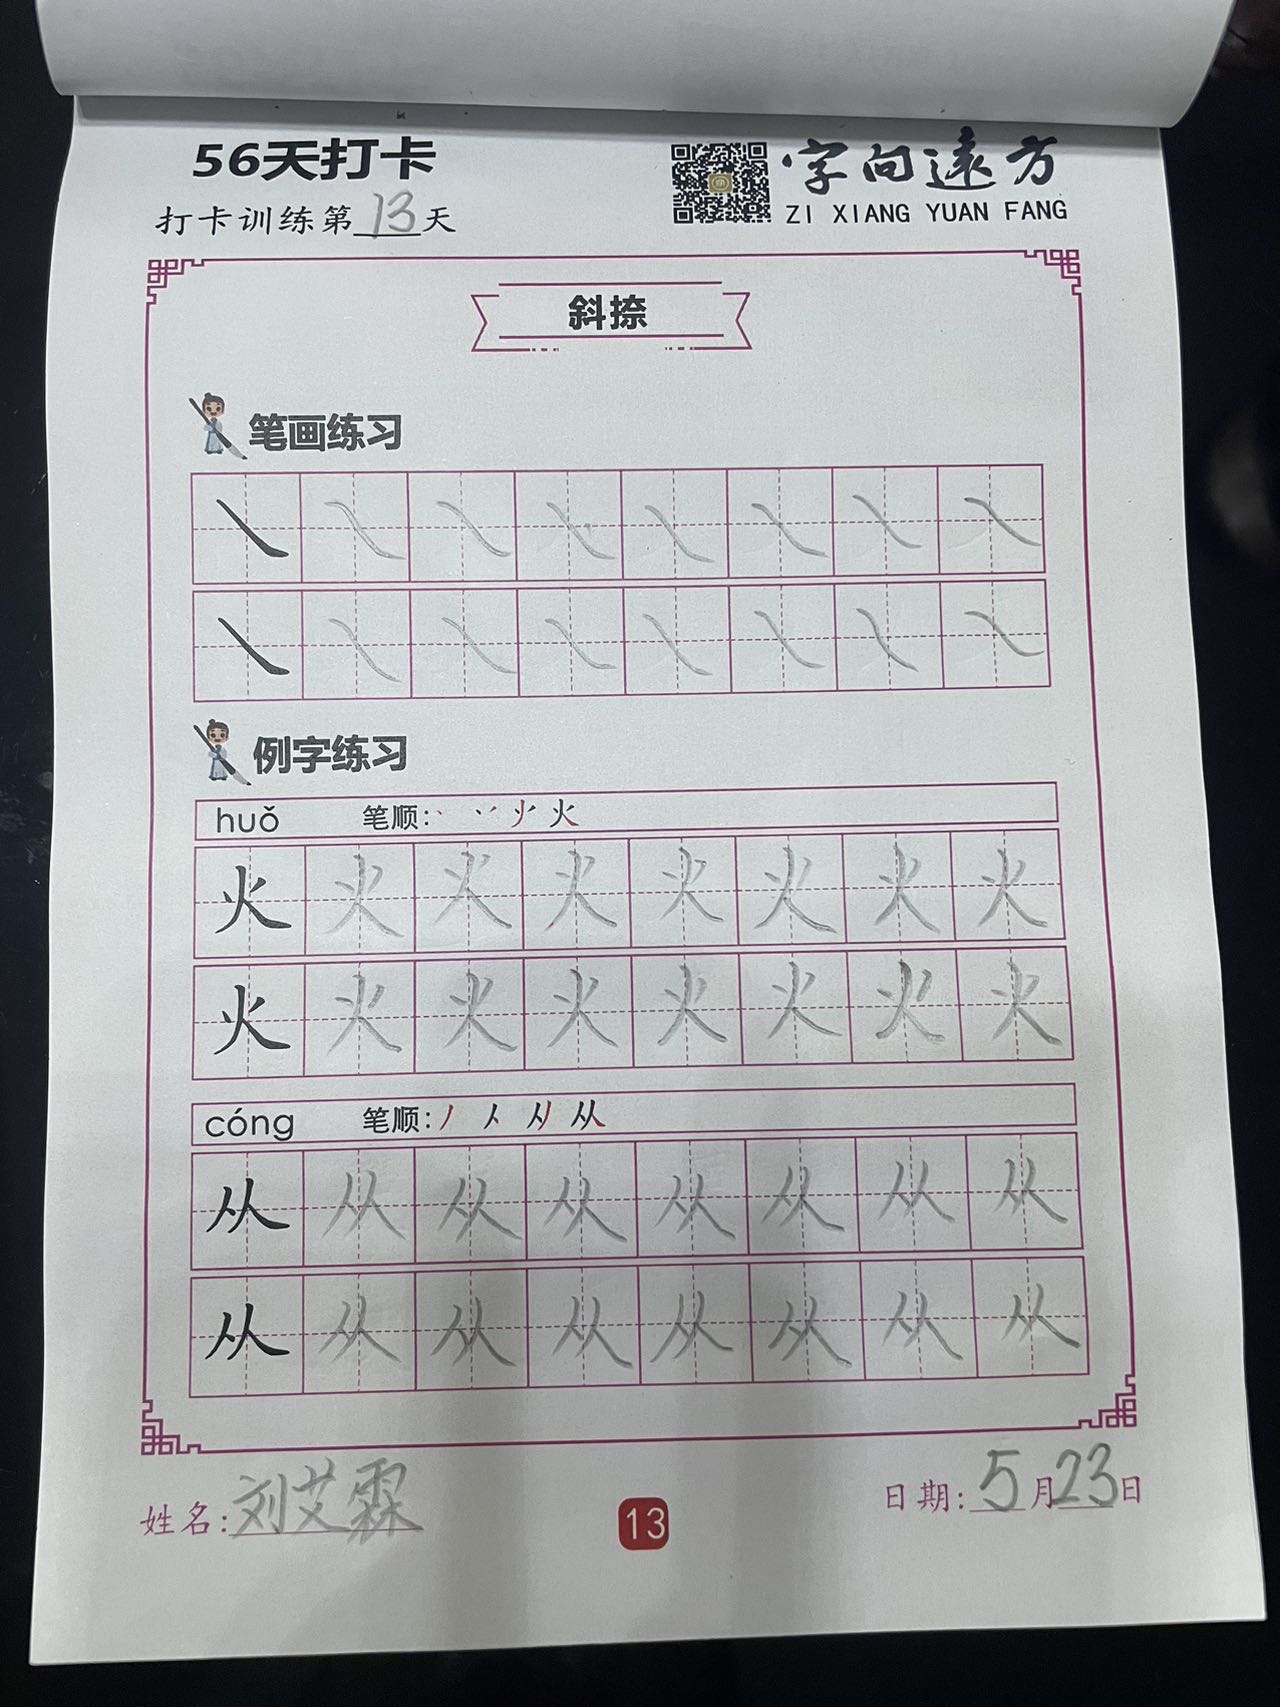 56天打卡
打卡训练第13天
字向遠方
ZI XIANG YUAN FANG
斜捺
笔画练习
例字练习
huǒ 笔顺: 火
火 火 火 火 火 火 火 火
火 火 火 火 火 火 火 火
cóng 笔顺: 从
从 从 从 从 从 从 从 从
从 从 从 从 从 从 从 从
姓名:刘艾霖
13
日期:5月23日